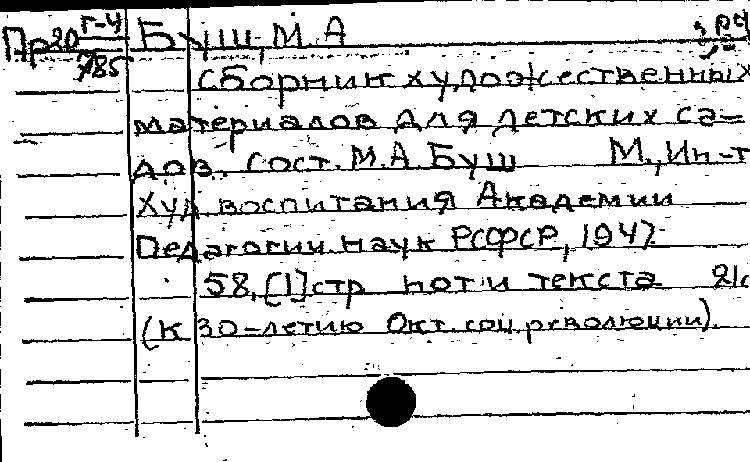 Пр20 Г-4 Буш, М.А
785
Сборник художественных
материалов для детских са-
дов. Сост. М.А. Буш М., Ин-т
Худ воспитания Академии
Педагогии наук РСФСР, 1947.
58, [1] стр нот и текста 21с
(К 30-летию Окт. соц. революции).